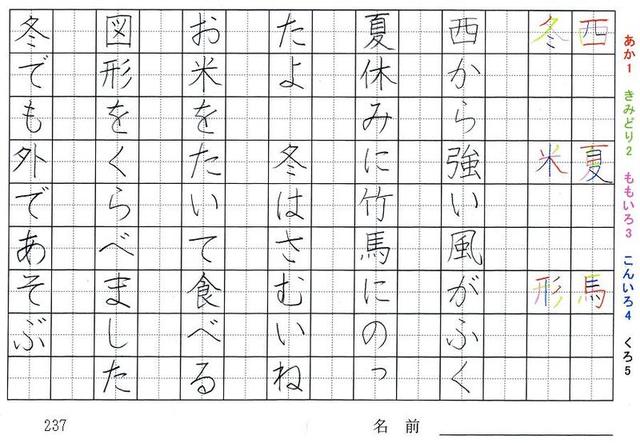 あか1 きみどり2 ももいろ3 こんいろ4 くろ5
西 夏 馬
冬 米 形
西から強い風がふく
夏休みに竹馬にのっ
たよ 冬はさむいね
お米をたいて食べる
図形をくらべました
冬でも外であそぶ
237
名前